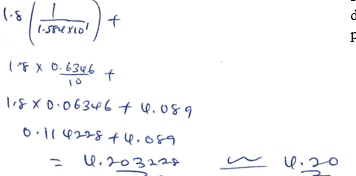 1.8 ( 1 / 1.584×10¹ ) +
1.8 × 0.6346 / 10 +
1.8 × 0.06346 + 4.089
0.114228 + 4.089
= 4.203228 ≈ 4.20
d
p